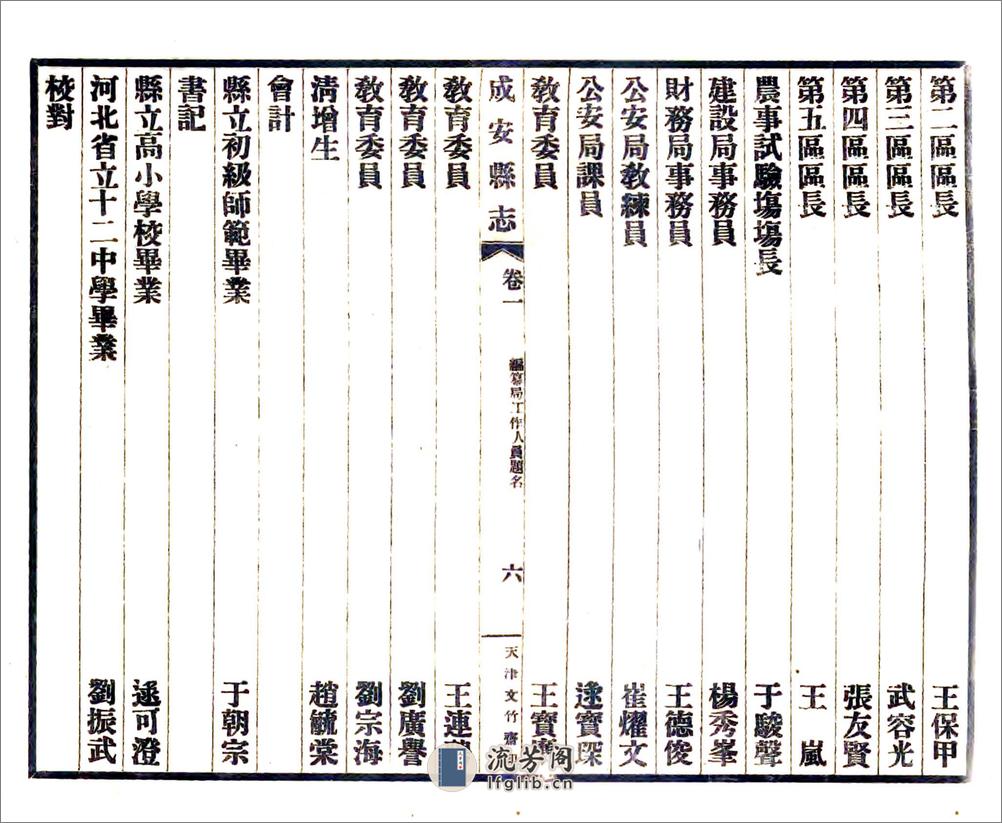 第二區區長 王保甲
第三區區長 武容光
第四區區長 張友賢
第五區區長 王嵐
農事試驗塲塲長 于駿聲
建設局事務員 楊秀峯
財務局事務員 王德俊
公安局敎練員 崔燿文
公安局課員 逯寶琛
敎育委員 王寶
成安縣志 卷一 編纂局工作人員題名 六 天津文竹齋
敎育委員 王連
敎育委員 劉廣譽
敎育委員 劉宗海
淸增生 趙毓棠
會計
縣立初級師範畢業 于朝宗
書記
縣立高小學校畢業 逯可澄
河北省立十二中學畢業 劉振武
校對
流芳阁
lfglib.cn